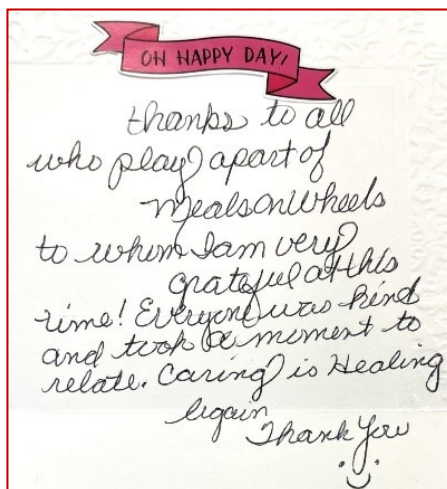 OH HAPPY DAY!
thanks to all
who play apart of
Meals on Wheels
to whom I am very
grateful at this
time! Everyone was kind
and took a moment to
relate. Caring is Healing
Again
Thank You